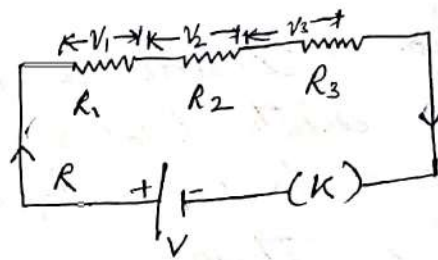 V₁ V₂ V₃
R₁ R₂ R₃
R + - (K)
V